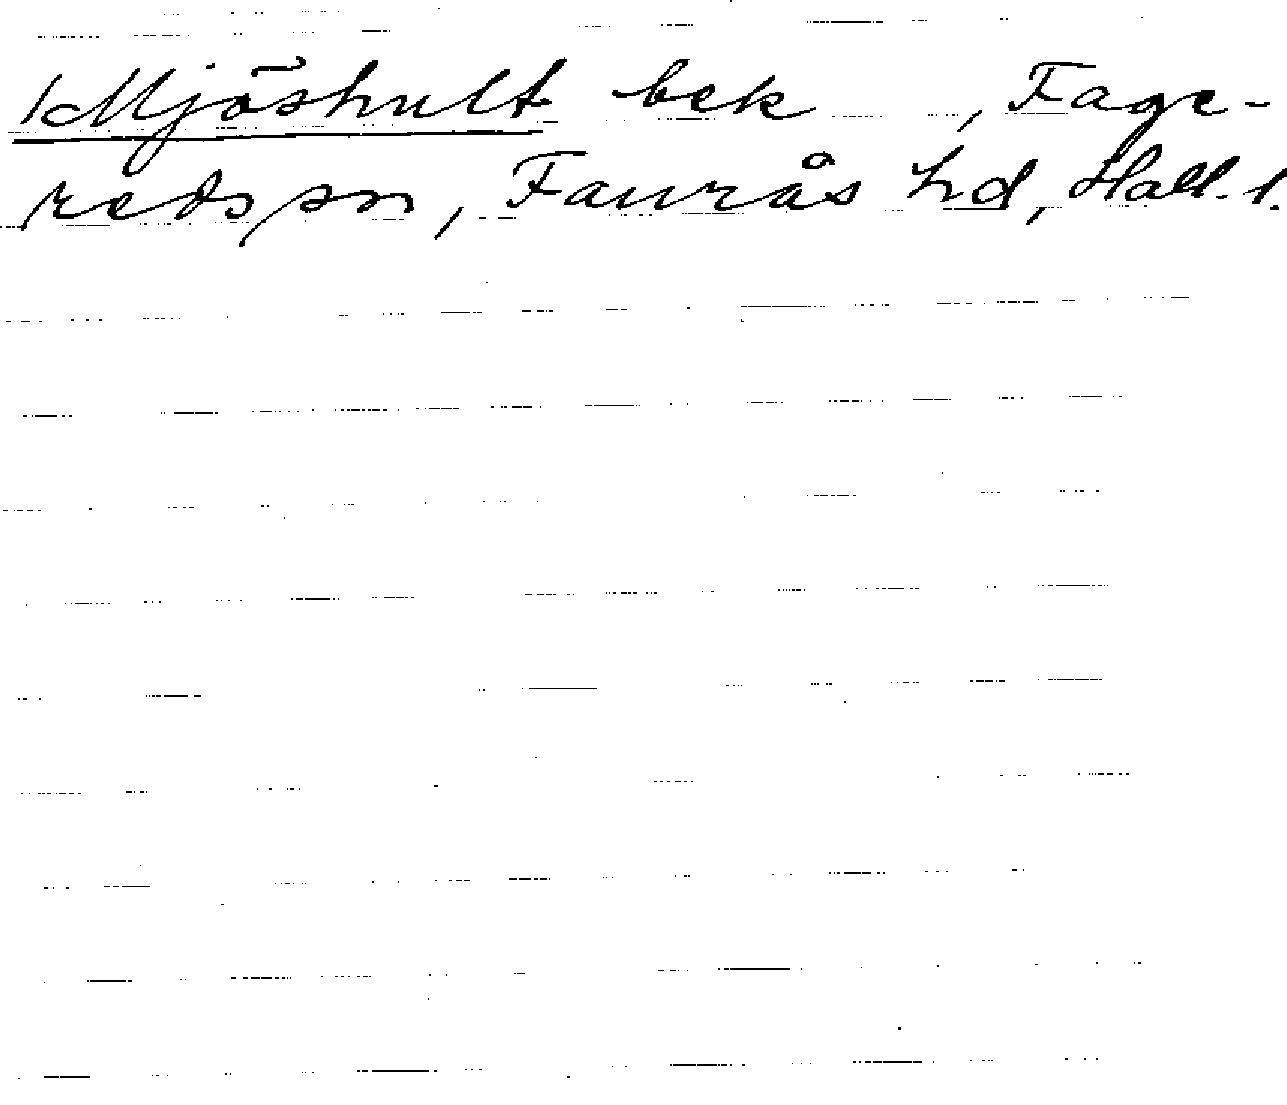 Mjöshult bek , Fage-
reds sn, Faurås hd, Hall. l.